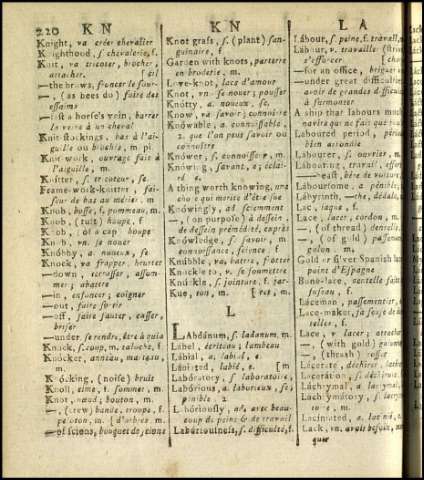 220 K N
K N
L A
Knight, va créer chevalier
Knighthood, s chevalerie, f.
Knit, va tricoter, brocher,
attacher. [cil
—the brows, froncer le sour-
—, (as bees do) faire des
essaims
—a horse's vein, barrer
la veine à un cheval
Knit-stockings, bas à l'ai-
guille ou broché, m pl.
Knit-work, ouvrage fait à
l'aiguille, m.
Knitter, s tricoteur, se.
Frame-work-knitter, fai-
seur de bas au métier. m
Knob, bosse, f. pommeau, m.
Knob, (tuft) houpe, f
Knob, of a cap houpe
Knob, vn. se nouer
Knobby, a. noueux, se
Knock, va frapper, heurter
—down, terrasser, assom-
mer, abattre
—in, enfoncer, coigner
—out, faire sortir
—off, faire sauter, casser,
briser
—under se rendre, être à quia
Knock, s. coup, m. taloche, f.
Knocker, anneau, marteau,
m.
Knocking, (noise) bruit
Knoll, cime, f. sommet, m.
Knot, nœud, bouton, m
—, (crew) bande, troupe, f.
peloton, m. [d'arbres m.
—of scions, bouquet de cions
Knot grass, s. (plant) san-
guinaire, f
Garden with knots, parterre
en broderie, m.
Love-knot, lacs d'amour
Knot, vn. se nouer; pousser
Knotty, a. noueux, se.
Know, va savoir; connoitre
Knowable, a. connoissable,
2. que l'on peut savoir ou
connoître
Knower, s. connoisseur, m
Knowing, savant, a; éclai-
ré
A thing worth knowing, une
chose qui merite d'être sue
Knowingly, ad. sciemment
—, (on purpose) à dessein
de dessein prémédité, exprès
Knowledge, s. savoir, m
connoissance, science f.
Knubble, va, battre, frotter
Knuckle to, v. se soumettre
Knuckle, s. jointure, f. jar-
Kue, ron, m. [ret, m.
L
LAbdanum, s. ladanum, m.
Label, écriteau; lambeau
Labial, a, labial, e.
Labiated, labié, e. [m
Laboratory, s. laboratoire,
Laborious, a. laborieux, se;
pénible. 2
Laboriously, ad. avec beau-
coup de peine & de travail
Laboriousness, s. difficulté, f.
Labour, s. peine, f. travail, m
Labour, v. travailler (strive)
s'efforcer
—for an office, briguer
—under great difficulties
avoir de grandes difficultés
à surmonter
A ship that labours much
navire qui ne fait que
Laboured period, période
bien arrondie
Labourer, s. ouvrier, m.
Labouring, travail,
—beast, bête de voiture,
Laboursome, a. pénible,
Labyrinth, —the, dédale,
Lac, laque, f.
Lace, lacet, cordon, m.
—, (of thread) dentelle,
—, (of gold) passement
galon m.
Gold or silver Spanish lace
point d'Espagne
Bone-lace, dentelle faite
fuseau, f.
Laceman, passementier,
Lace-maker, faiseuse de
telles, f.
Lace, v lacer; attacher
—, (with gold)
—, (thrash) rosser
Lacerate, déchirer,
Laceration, s déchirement
Lachrymal, a. lacrymal,
Lachrymatory, s.
toire, m.
Laciniated, a.
Lack, vn. avoir besoin,
quer